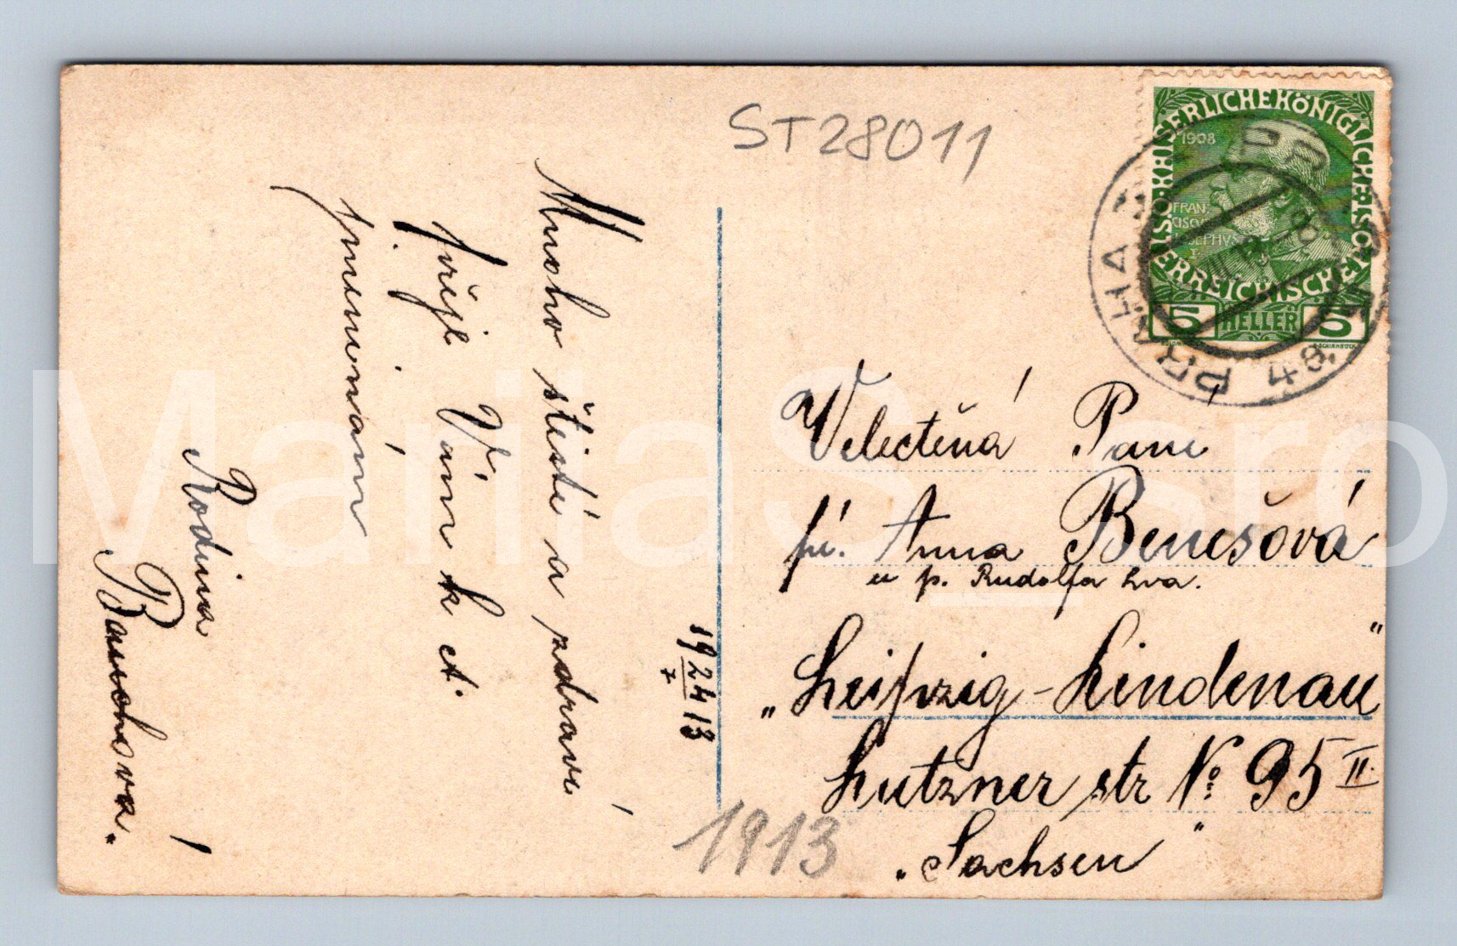 ST28011
Mnoho štěstí a zdraví
přeje Vám k A.
jmeninám
Rodina
Bauchova.
19 24/7 13
KAISERLICHE KÖNIGLICHE
ÖSTERREICHISCHE
1908
FRAN-
CISCVS
JOSEPHVS
5 HELLER 5
PRAHA
Velectěná Paní
pí. Anna Benešová
u p. Rudolfa Lva.
„Leipzig-Lindenau"
Lutzner str No 95 II.
„Sachsen"
1913
MariaS_sro